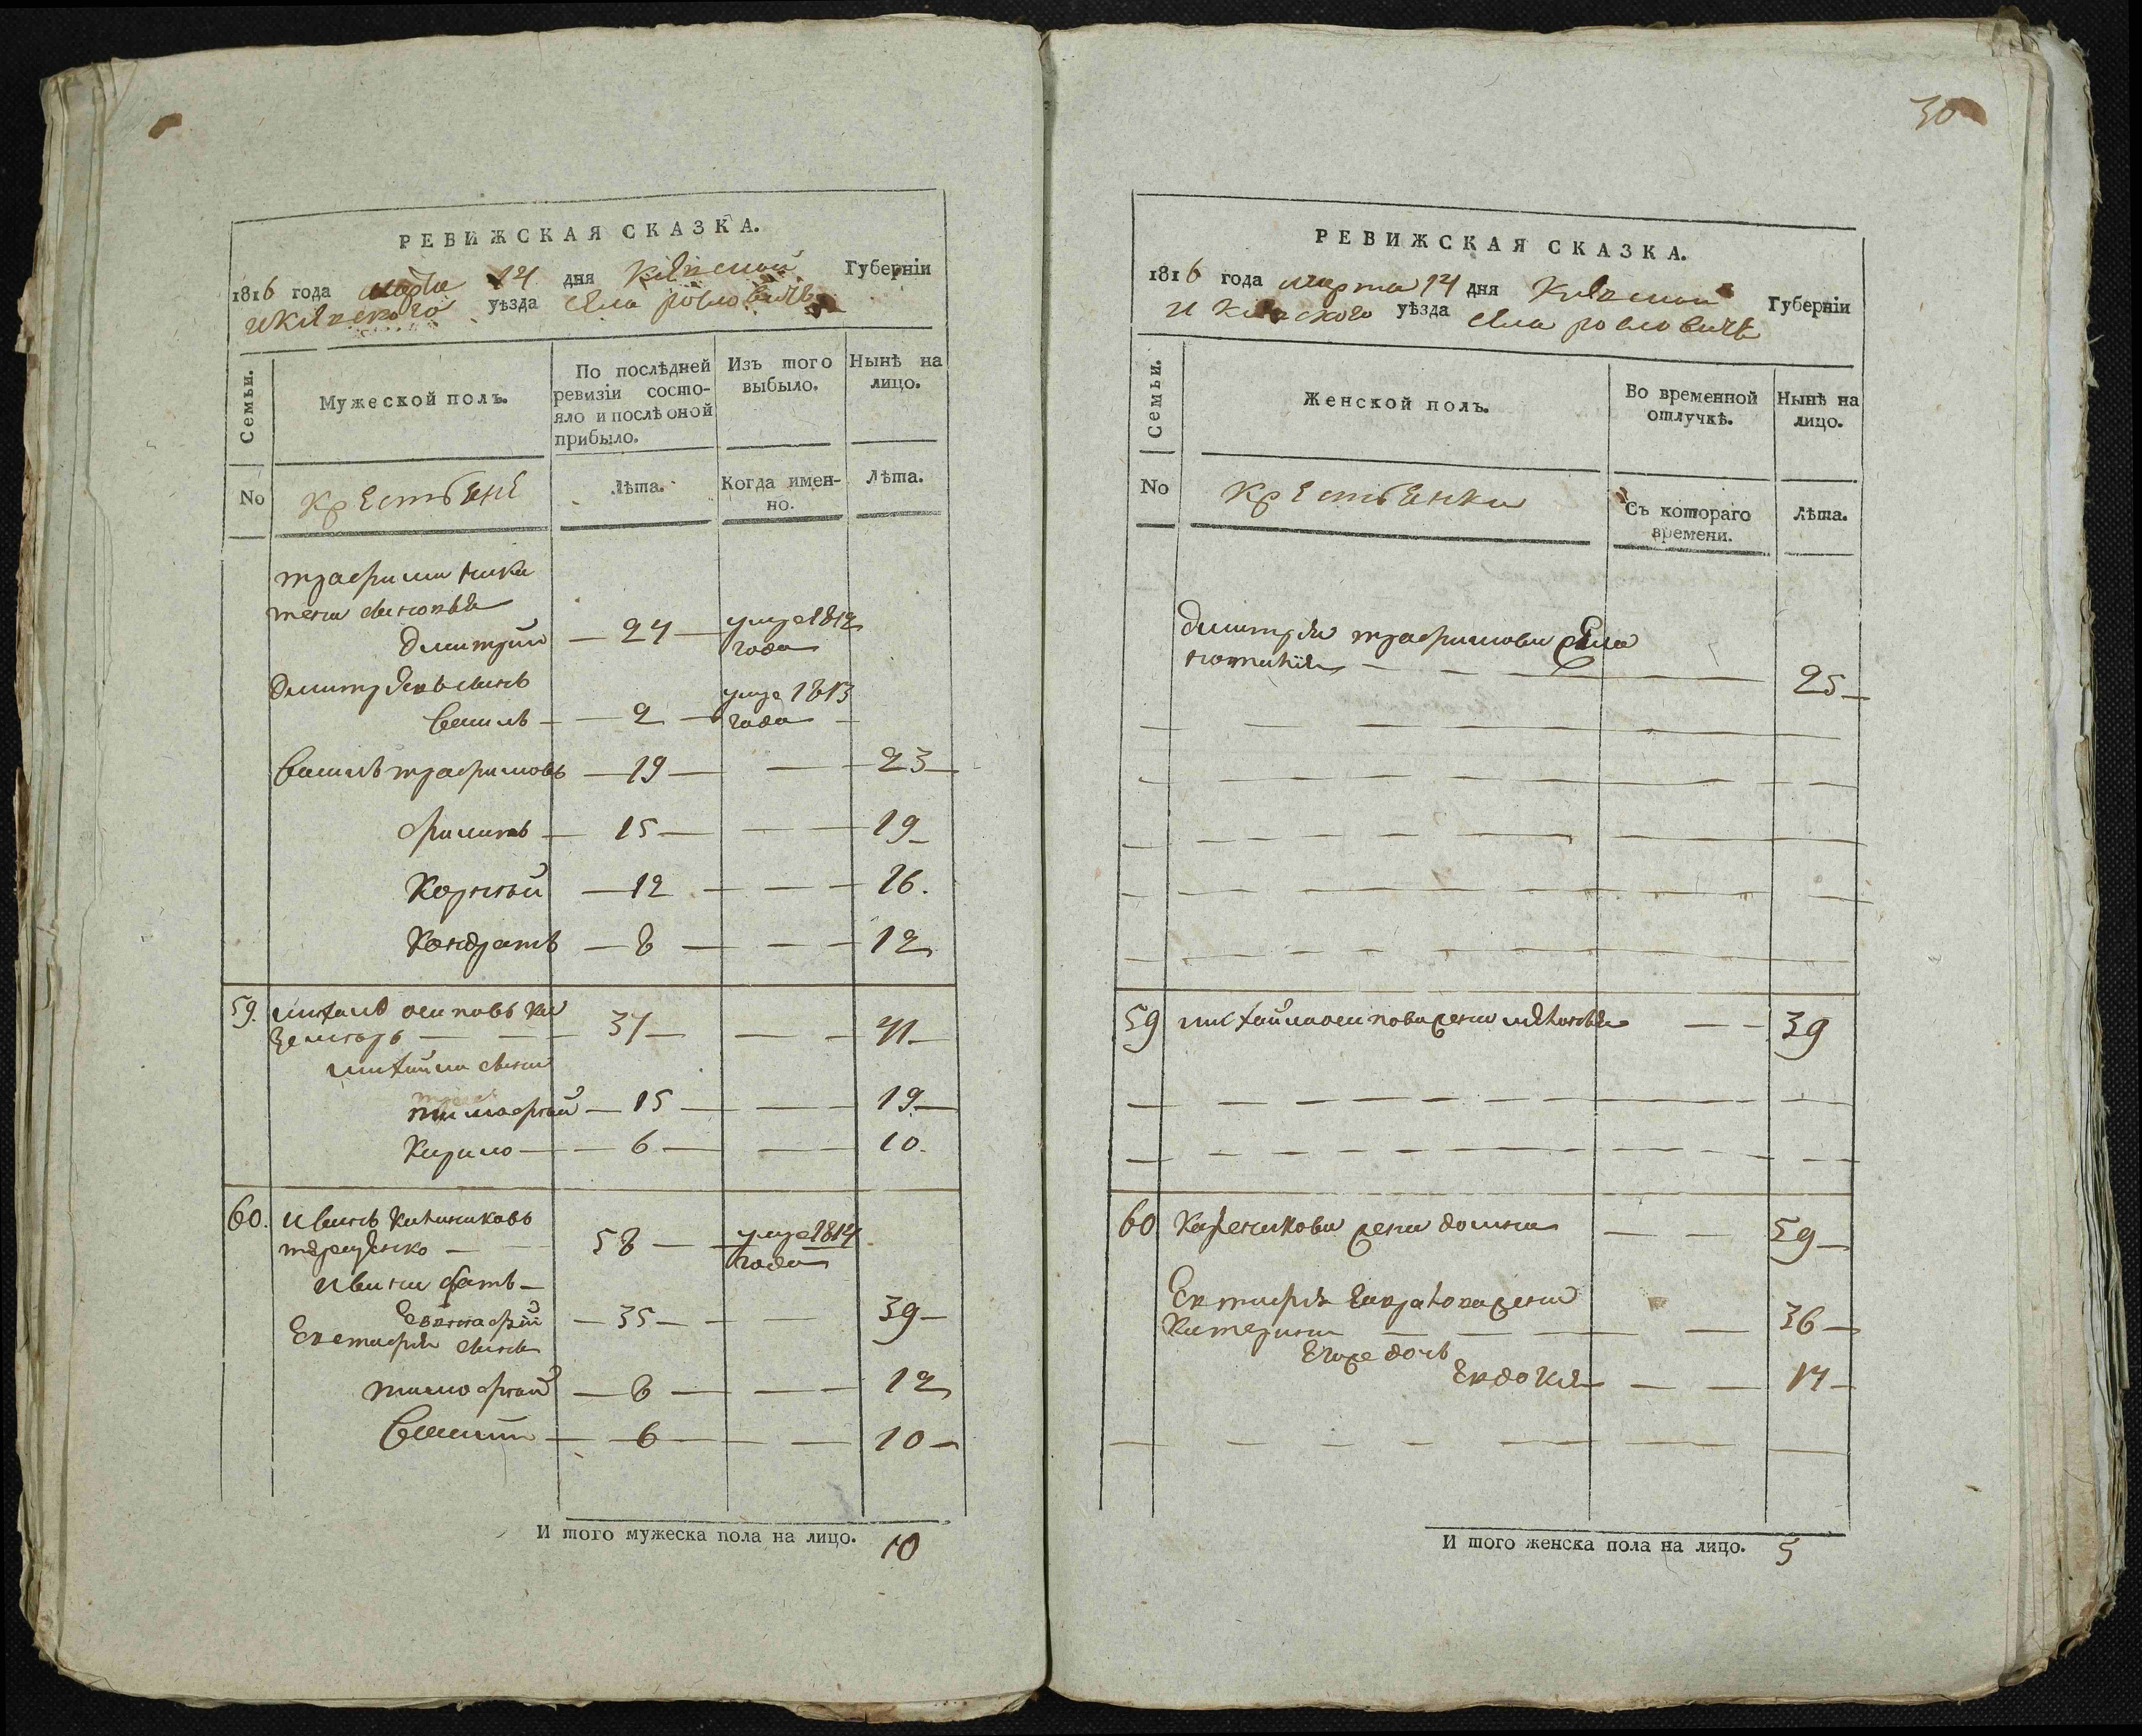 30
РЕВИЖСКАЯ СКАЗКА.
1816 года марта 14 дня Кіевской Губерніи
и Кіевского уѣзда села рославичь
Семьи.
Мужеской полъ.
По послѣдней ревизіи состо-
яло и послѣ оной
прибыло.
Изъ того
выбыло.
Нынѣ на
лицо.
No
крестьяне
Лѣта.
Когда имен-
но.
Лѣта.
трафима ники
тена синовья
Дмитрій — 24 — умре 1812
года
Дмитріевъ синъ
Василь — 2 — умре 1813
года
Василь трафимовъ — 19 — — 23
15 — — 19
Корней — 12 — — 16.
Кондратъ — 8 — — 12
59. михаилъ осиповъ
— 37 — — 41
михайла сини
тимофей — 15 — — 19
Кирило — 6 — — 10.
60. иванъ
терещенко — 58 — умре 1814
года
ивана братъ
Евстафій — 35 — — 39
Евстафія сини
тимофей — 8 — — 12
— 6 — — 10
И того мужеска пола на лицо. 10
РЕВИЖСКАЯ СКАЗКА.
1816 года марта 14 дня Кіевской Губерніи
и Кіевского уѣзда села рославичь
Семьи.
Женской полъ.
Во временной
отлучкѣ.
Нынѣ на
лицо.
No
крестьянки
Съ котораго
времени.
Лѣта.
Дмитрія трафимова жена
наталія — 25
59 михайла осипова жена — 39
60 жена домна — 59
Евстафія жена
Катерина — 36
Егоже дочь
Евдокія — 14
И того женска пола на лицо. 5